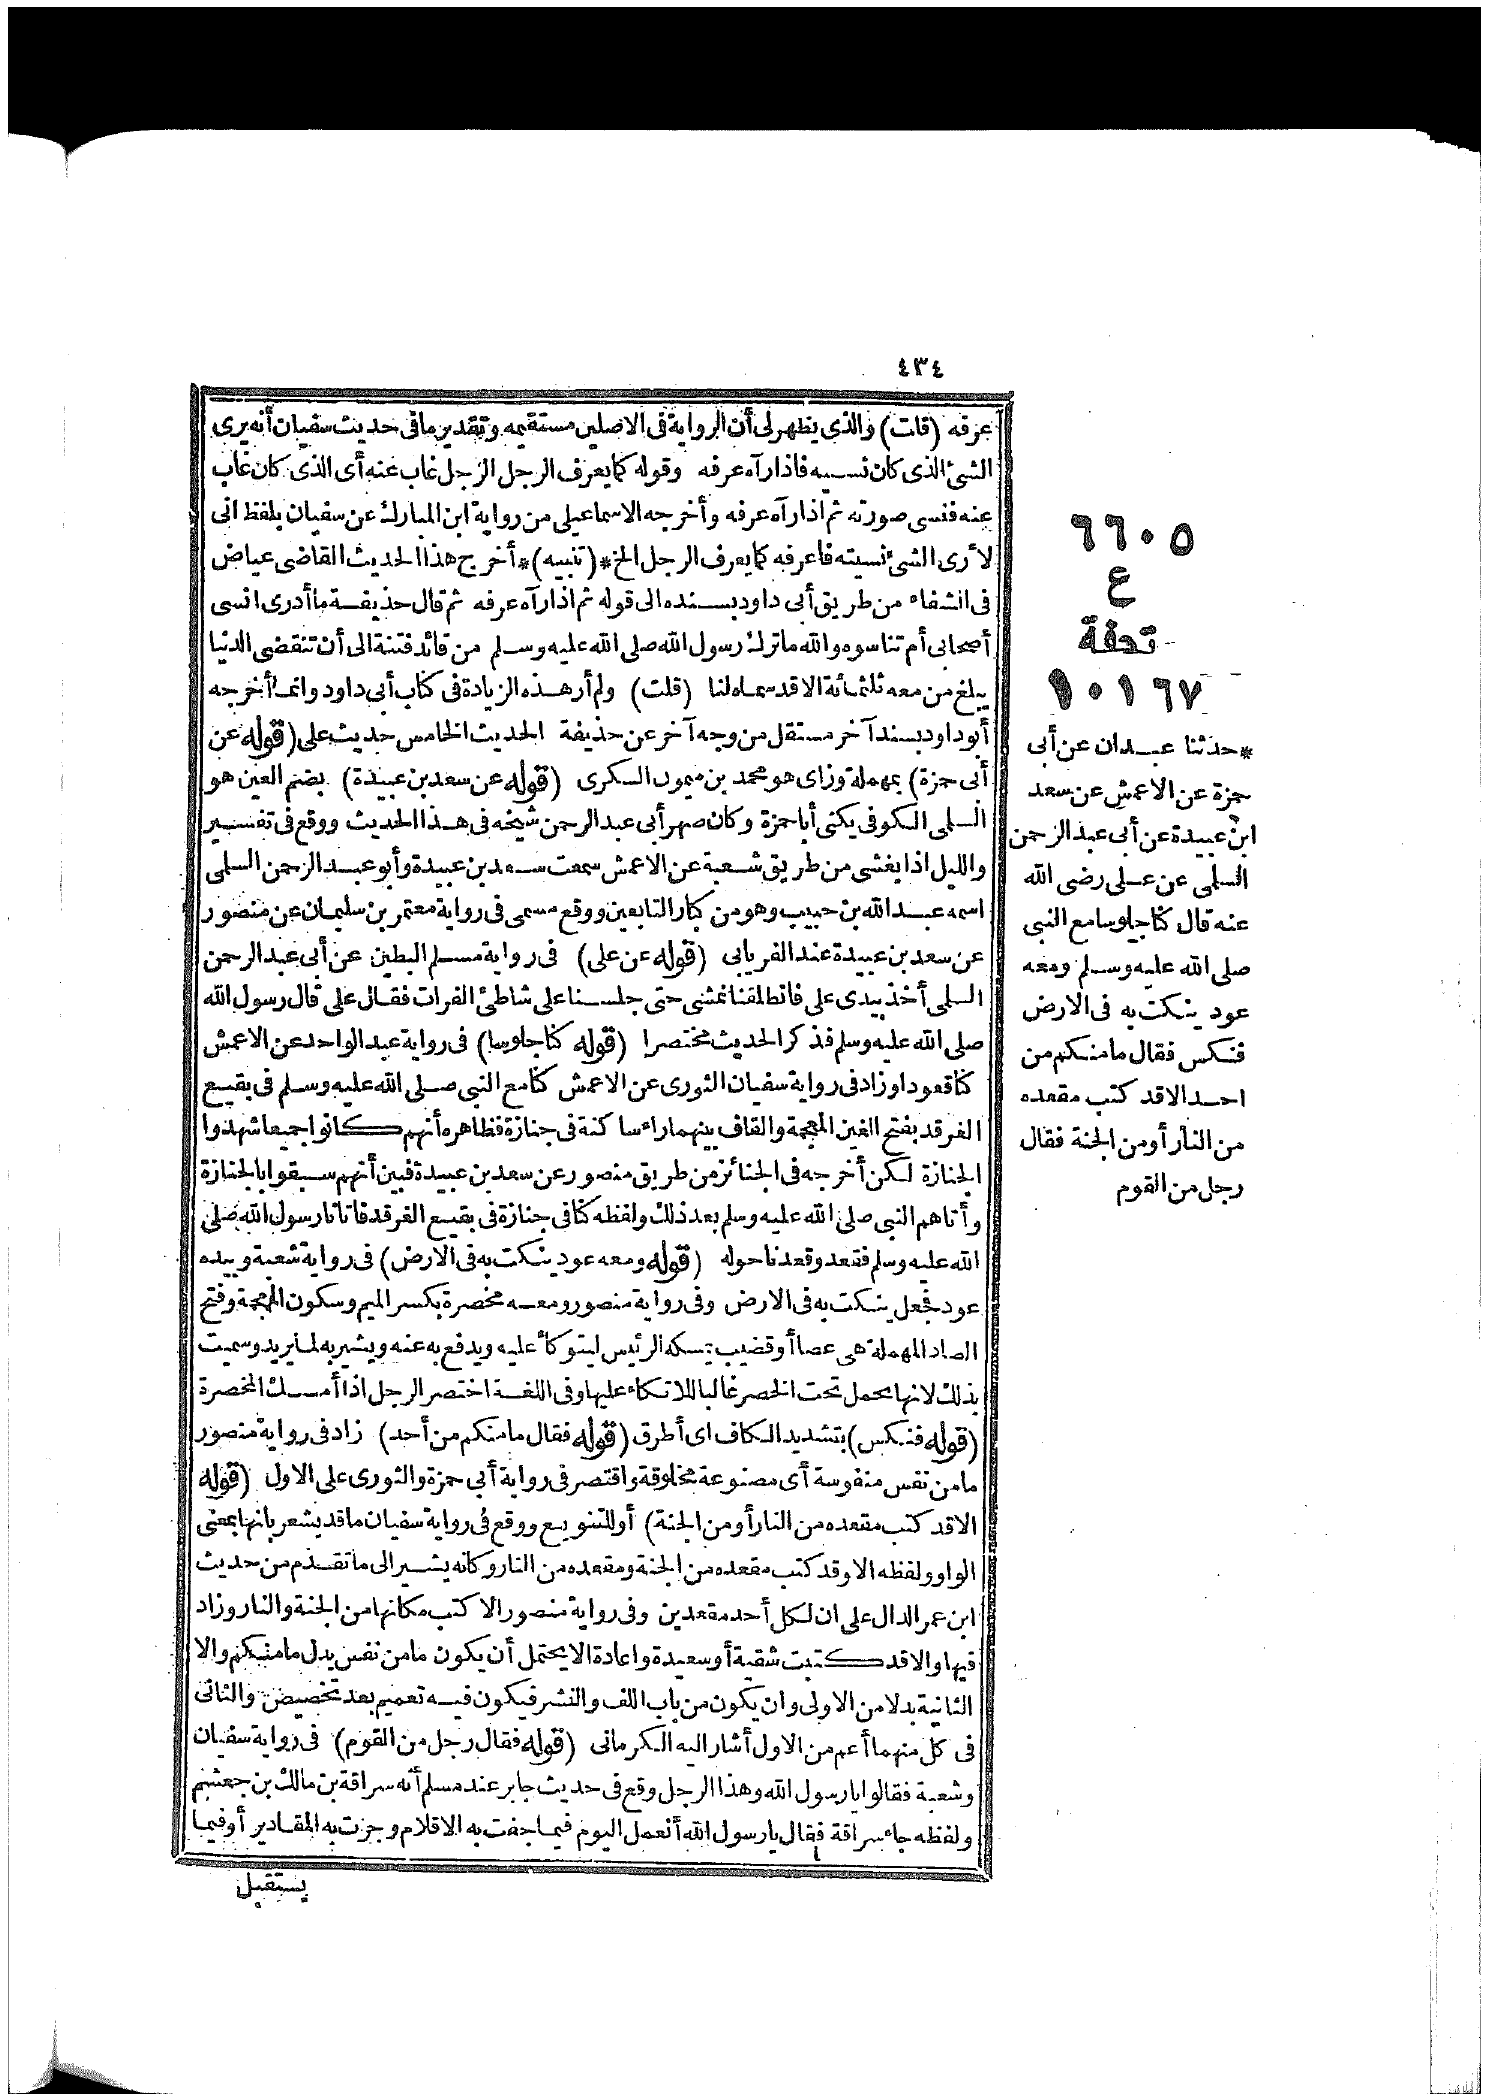 ٤٣٤
عرفه (قلت) والذي يظهر لى أن الرواية فى الاصلين مستقيمه وتقدير مافى حديث سفيان أنه يرى
الشئ الذى كان نسيه فاذا رآه عرفه وقوله كما يعرف الرجل الرجل غاب عنه أى الذى كان غاب
عنه فنسى صورته ثم اذا رآه عرفه وأخرجه الاسماعيلى من رواية ابن المبارك عن سفيان بلفظ انى
لأرى الشئ نسيته فاعرفه كما يعرف الرجل الخ * (تنبيه) * أخرج هذا الحديث القاضى عياض
فى الشفاء من طريق أبى داود بسنده الى قوله ثم اذا رآه عرفه ثم قال حذيفة ما أدرى انسى
أصحابى أم تناسوه والله ماترك رسول الله صلى الله عليه وسلم من قائد فتنة الى أن تنقضى الدنيا
يبلغ من معه ثلثمائة الا قد سماه لنا (قلت) ولم أر هذه الزيادة فى كتاب أبى داود وانما أخرجه
أبو داود بسند آخر مستقل من وجه آخر عن حذيفة الحديث الخامس حديث على (قوله عن
أبى حمزة) بمهملة وزاى هو محمد بن ميمون السكرى (قوله عن سعد بن عبيدة) بضم العين هو
السلمى الكوفى يكنى أبا حمزة وكان صهر أبى عبد الرحمن شيخه فى هذا الحديث ووقع فى تفسير
والليل اذا يغشى من طريق شعبة عن الاعمش سمعت سعد بن عبيدة وأبو عبد الرحمن السلمى
اسمه عبد الله بن حبيب وهو من كبار التابعين ووقع مسمى فى رواية معتمر بن سليمان عن منصور
عن سعد بن عبيدة عند الفريابى (قوله عن على) فى رواية مسلم البطين عن أبى عبد الرحمن
السلمى أخذ بيدى على فانطلقنا نمشى حتى جلسنا على شاطئ الفرات فقال على قال رسول الله
صلى الله عليه وسلم فذكر الحديث مختصرا (قوله كنا جلوسا) فى رواية عبد الواحد عن الاعمش
كنا قعودا وزاد فى رواية سفيان الثورى عن الاعمش كنا مع النبى صلى الله عليه وسلم فى بقيع
الغرقد بفتح الغين المعجمة والقاف بينهما راء ساكنة فى جنازة فظاهره أنهم كانوا جميعا شهدوا
الجنازة لكن أخرجه فى الجنائز من طريق منصور عن سعد بن عبيدة فبين أنهم سبقوا بالجنازة
وأتاهم النبى صلى الله عليه وسلم بعد ذلك ولفظه كنا فى جنازة فى بقيع الغرقد فاتانا رسول الله صلى
الله عليه وسلم فقعد وقعدنا حوله (قوله ومعه عود ينكت به فى الارض) فى رواية شعبة وبيده
عود فجعل ينكت به فى الارض وفى رواية منصور ومعه مخصرة بكسر الميم وسكون المعجمة وفتح
الصاد المهملة هى عصا أو قضيب يمسكه الرئيس ليتوكأ عليه ويدفع به عنه ويشير به لما يريد وسميت
بذلك لانها تحمل تحت الخصر غالبا للاتكاء عليها وفى اللغة اختصر الرجل اذا أمسك المخصرة
(قوله فنكس) بتشديد الكاف اى أطرق (قوله فقال مامنكم من أحد) زاد فى رواية منصور
مامن نفس منفوسة أى مصنوعة مخلوقة واقتصر فى رواية أبى حمزة والثورى على الاول (قوله
الاقد كتب مقعده من النار أو من الجنة) أو للتنويع ووقع فى رواية سفيان ماقد يشعر بانها بمعنى
الواو ولفظه الا وقد كتب مقعده من الجنة ومقعده من النار وكانه يشير الى ماتقدم من حديث
ابن عمر الدال على ان لكل أحد مقعدين وفى رواية منصور الا كتب مكانها من الجنة والنار وزاد
فيها والاقد كتبت شقية أو سعيدة واعادة الا يحتمل أن يكون مامن نفس بدل مامنكم والا
الثانية بدلا من الاولى وان يكون من باب اللف والنشر فيكون فيه تعميم بعد تخصيص والثانى
فى كل منهما أعم من الاول أشار اليه الكرمانى (قوله فقال رجل من القوم) فى رواية سفيان
وشعبة فقالوا يارسول الله وهذا الرجل وقع فى حديث جابر عند مسلم أنه سراقة بن مالك بن جعشم
ولفظه جاء سراقة فقال يارسول الله أنعمل اليوم فيما جفت به الاقلام وجرت به المقادير أو فيما
يستقبل
٦٦٠٥
ع
تحفة
١٠١٦٧
* حدثنا عبدان عن أبى
حمزة عن الاعمش عن سعد
ابن عبيدة عن أبى عبد الرحمن
السلمى عن على رضى الله
عنه قال كنا جلوسا مع النبى
صلى الله عليه وسلم ومعه
عود ينكت به فى الارض
فنكس فقال مامنكم من
احد الاقد كتب مقعده
من النار أو من الجنة فقال
رجل من القوم